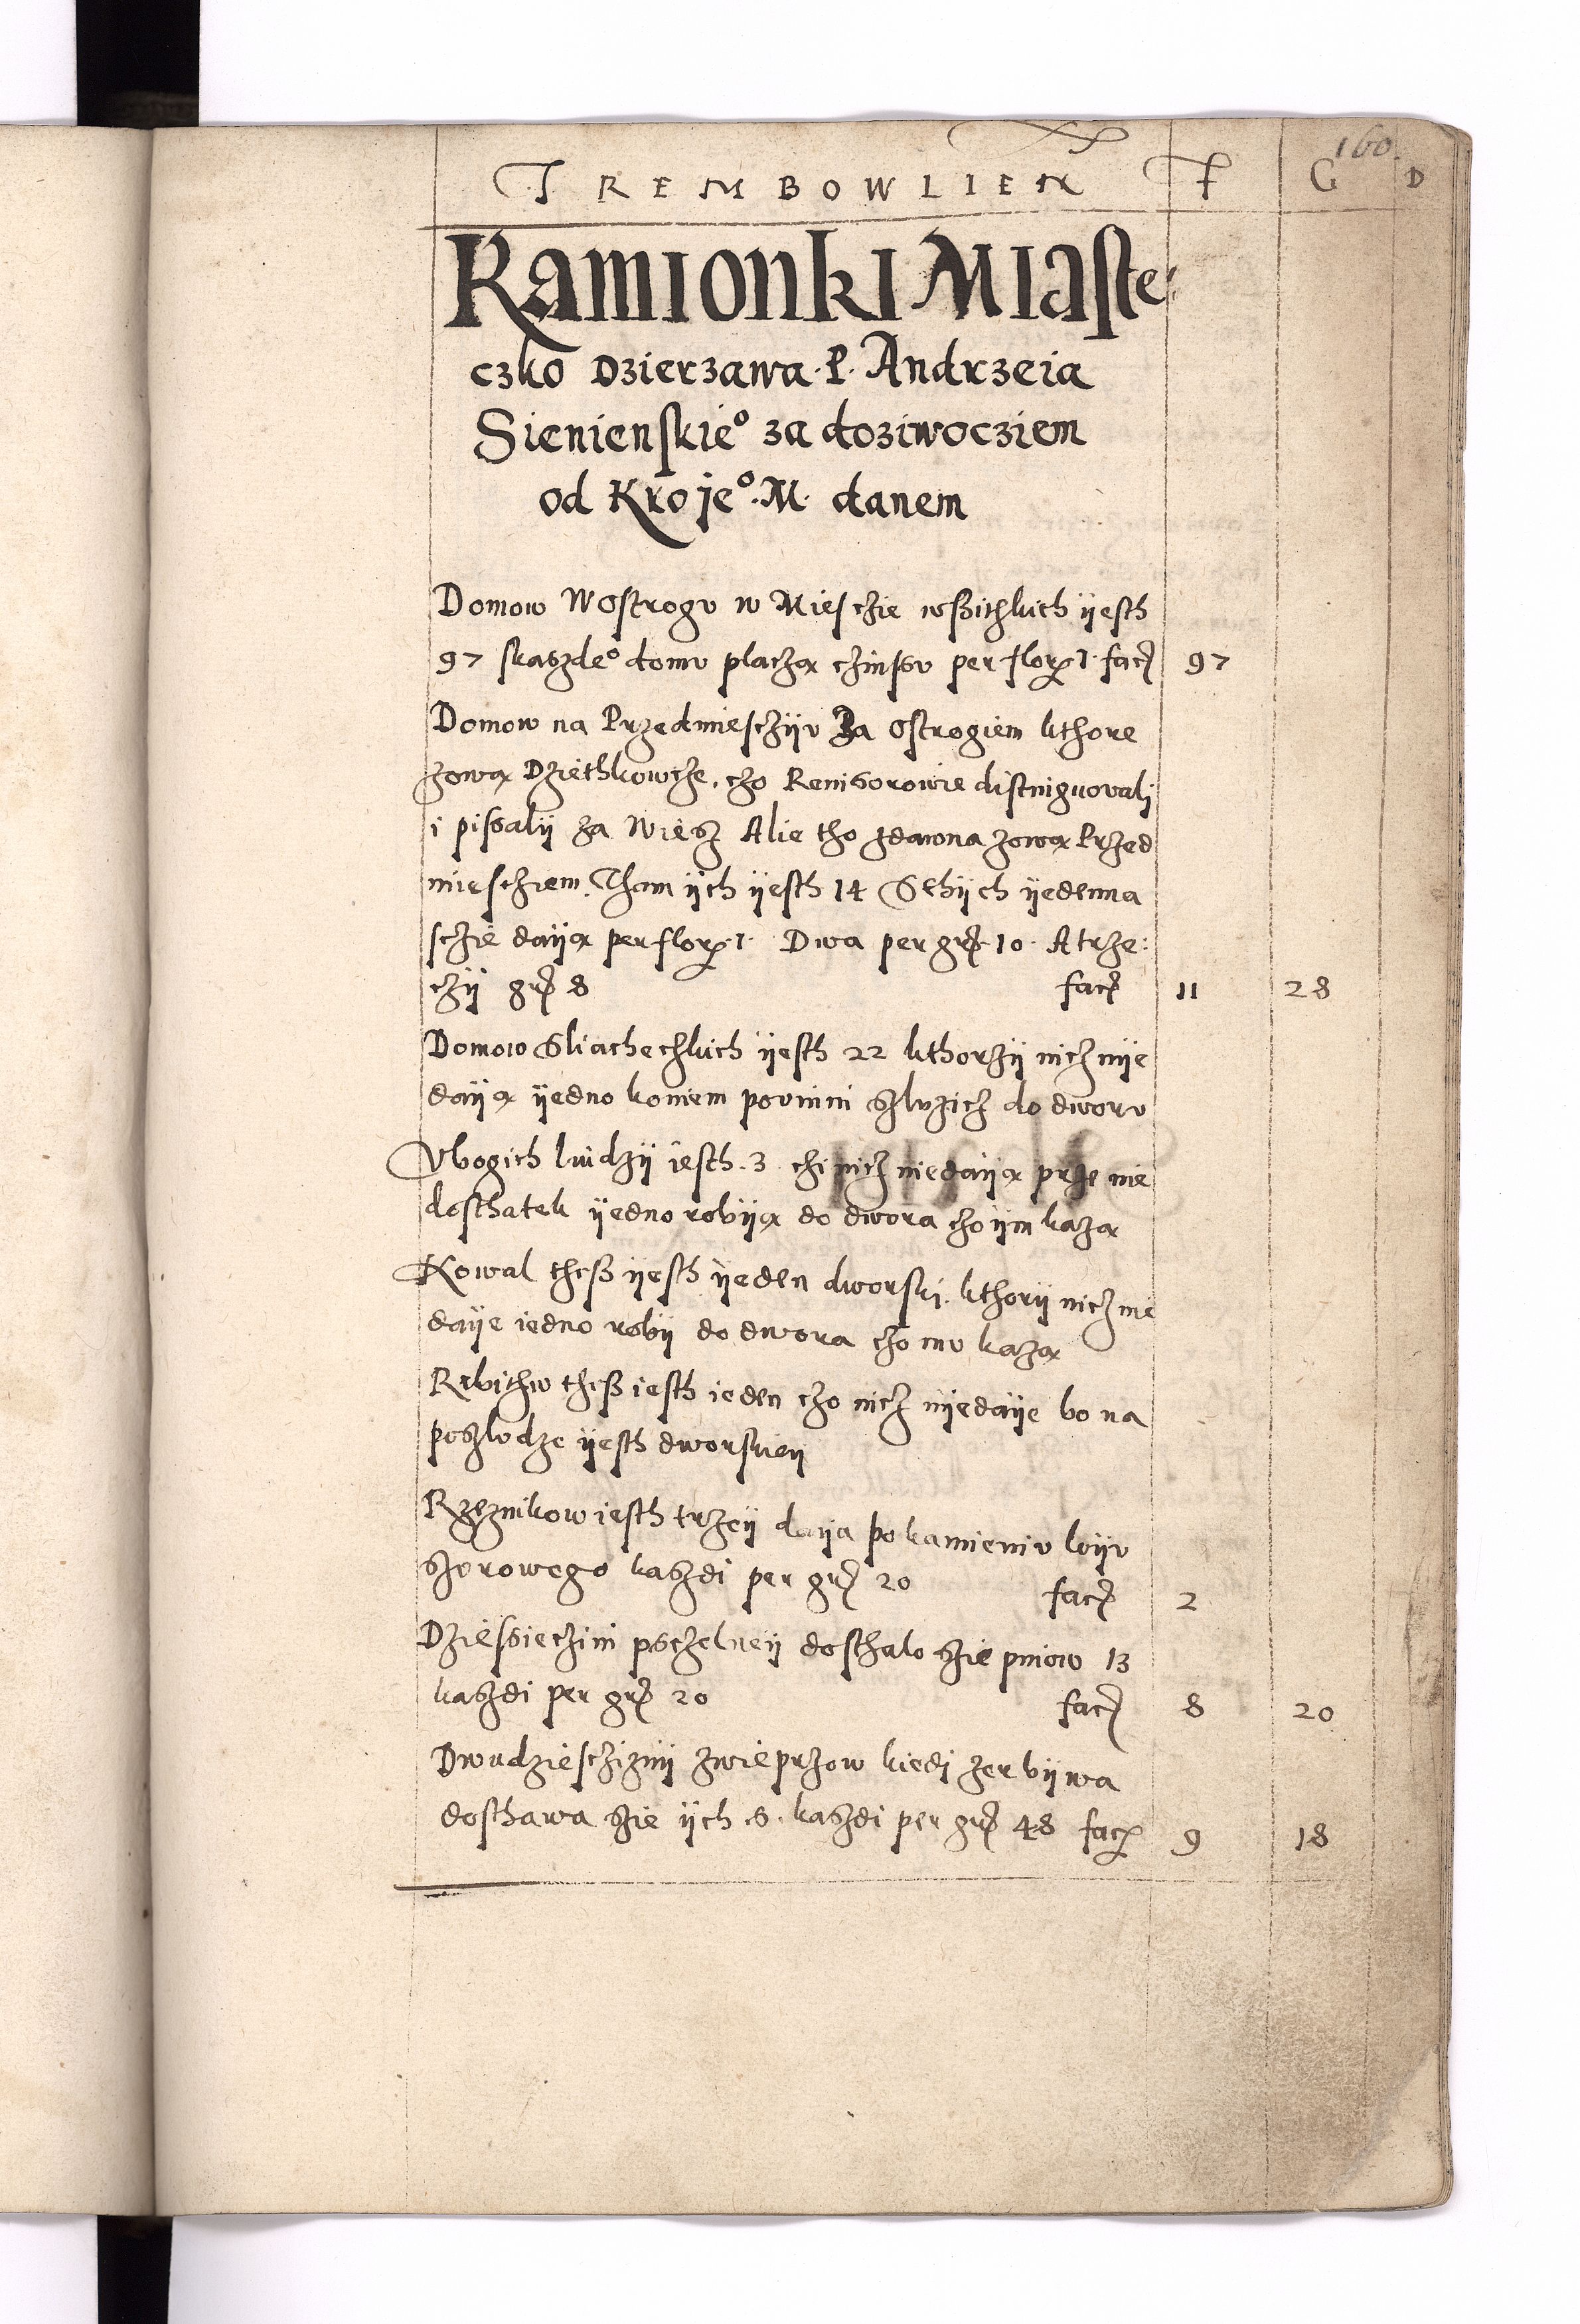 160
TREMBOWLIEN F G D
Kamionki Miaste:
czko Dzierzawa P. Andrzeia
Sienienskie° za doziwocziem
od Kro je°. M. danem
Domow W Ostrogu w Miesczie wssithkich yesth
97 skaszde° domu placzą czinszu per flor 1 facj 97
Domow na Przedmiesczyu Za Ostrogiem kthore
zową Dziethkowcze, czo Revisorowie distinguovali
i pissaly za Wiesz Alie tho zdawna zową Przed
miesczem. Tham ych yesth 14 S thych yedenna
sczie dayą per flor 1. Dwa per grj 10. A trze:
czy grj 8 facj 11 28
Domow Sliacheczkich yesth 22 kthorzy nicz nye
dayą yedno koniem povinni szluzicz do dworu
Vbogich ludzy iesth 3 chi nicz niedayą prze nie
dosthatek yedno robyą do dwora czo ym kazą
Kowal thess yesth yeden dworski kthory nicz nie
daye iedno roby do dwora czo mu kazą
Ribithw thess iesth ieden czo nicz nyedaye bo na
poszludze yesth dworskiey
Rzeznikow iesth trzey daya po kamieniu loyu
szorowego kaszdi per grj 20 facj 2
Dziessiecini psczelney dosthalo szie pniow 13
kaszdi per grj 20 facj 8 20
Dwudziesczizny zwieprzow kiedi zer bywa
dosthawa szie ych 6. kaszdi per grj 48 facj 9 18